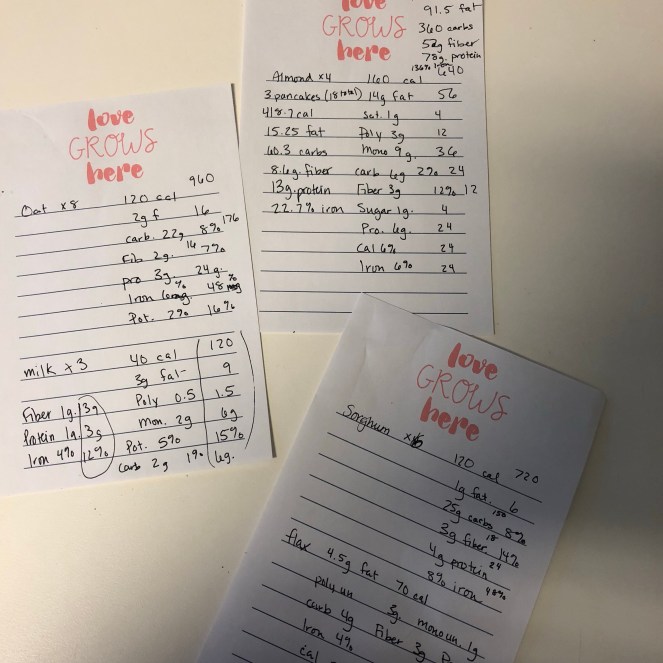 love
GROWS
here
960
Oat x8 120 cal
2g f 16
carb. 22g 8% 176
Fib 2g. 16 7%
pro 3g. 24g.
Iron 6% 48%
Pot. 2% 16%
milk x3 40 cal 120
3g fat 9
Fiber 1g. 3g Poly 0.5 1.5
Protein 1g. 3g mon. 2g 6g
Iron 4% 12% Pot. 5% 15%
carb 2g 1% 6g.
love
GROWS
here
91.5 fat
360 carbs
52g fiber
78g. protein
136% Iron
Almond x4 160 cal 640
3 pancakes (18 total) 14g fat 56
418.7 cal Sat. 1g 4
15.25 fat Poly 3g 12
60.3 carbs Mono 9g. 36
8.6g. fiber carb 6g 2% 24
13g. protein Fiber 3g 12% 12
22.7% iron Sugar 1g. 4
Pro. 6g. 24
Cal 6% 24
Iron 6% 24
love
GROWS
here
Sorghum 120 cal 720
1g fat. 6
25g carbs 150 8%
3g fiber 18 14%
4g protein 24
8% iron 48%
flax 4.5g fat 70 cal
poly un 3g. monoun. 1g
carb 4g Fiber 3g
Iron 4%
cal